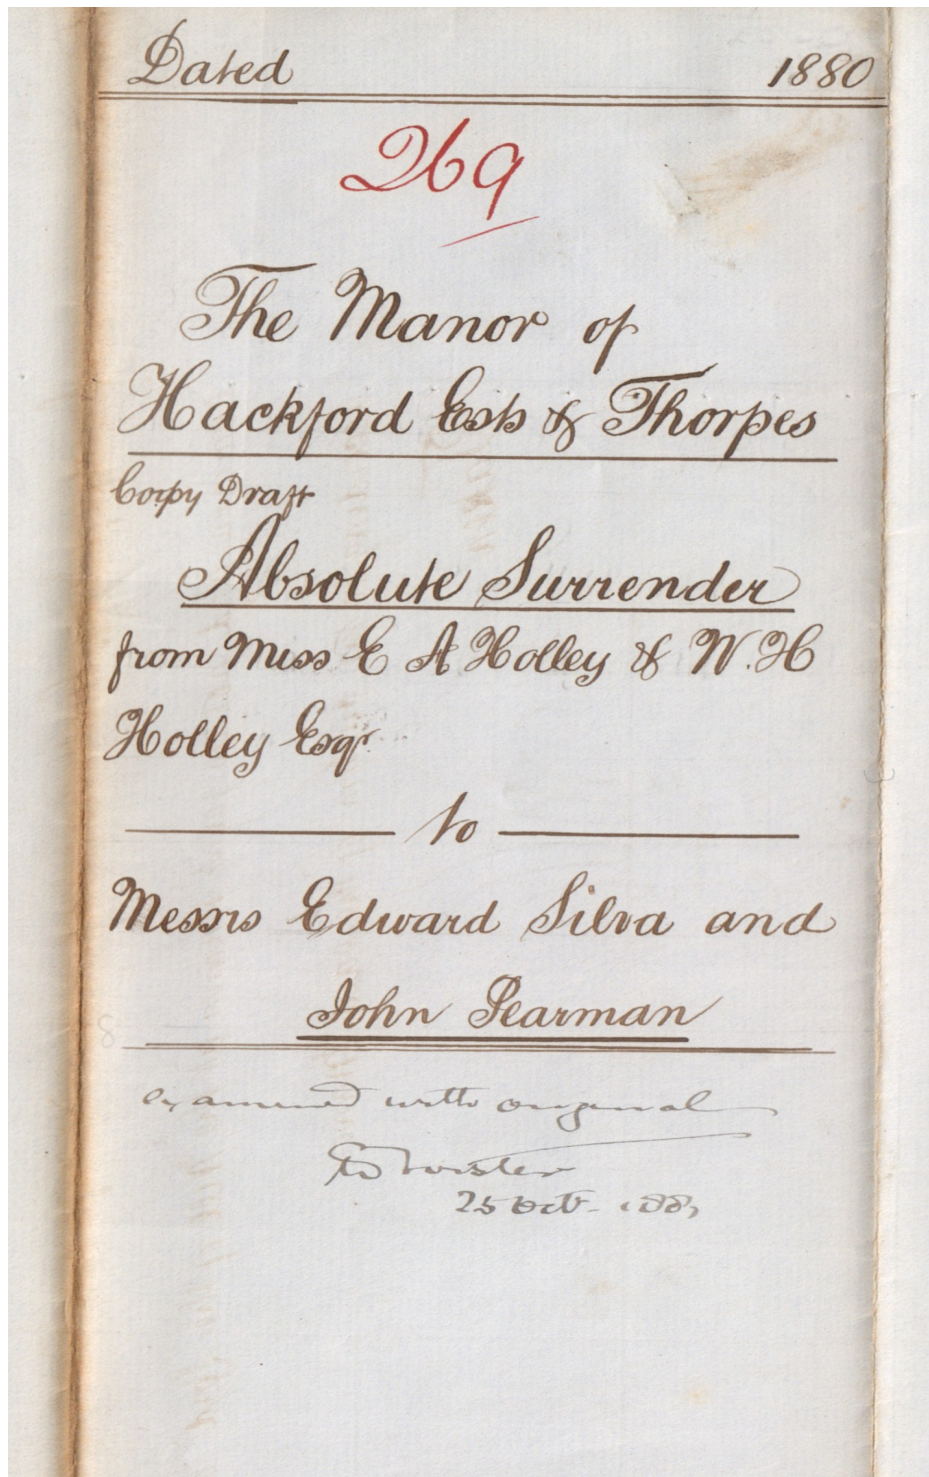 Dated 1880
269
The Manor of
Hackford Ests & Thorpes
Copy Draft
Absolute Surrender
from Miss E A Holley & W. H
Holley Esqr
to
Messrs Edward Silva and
John Pearman
examined with original
25 Oct